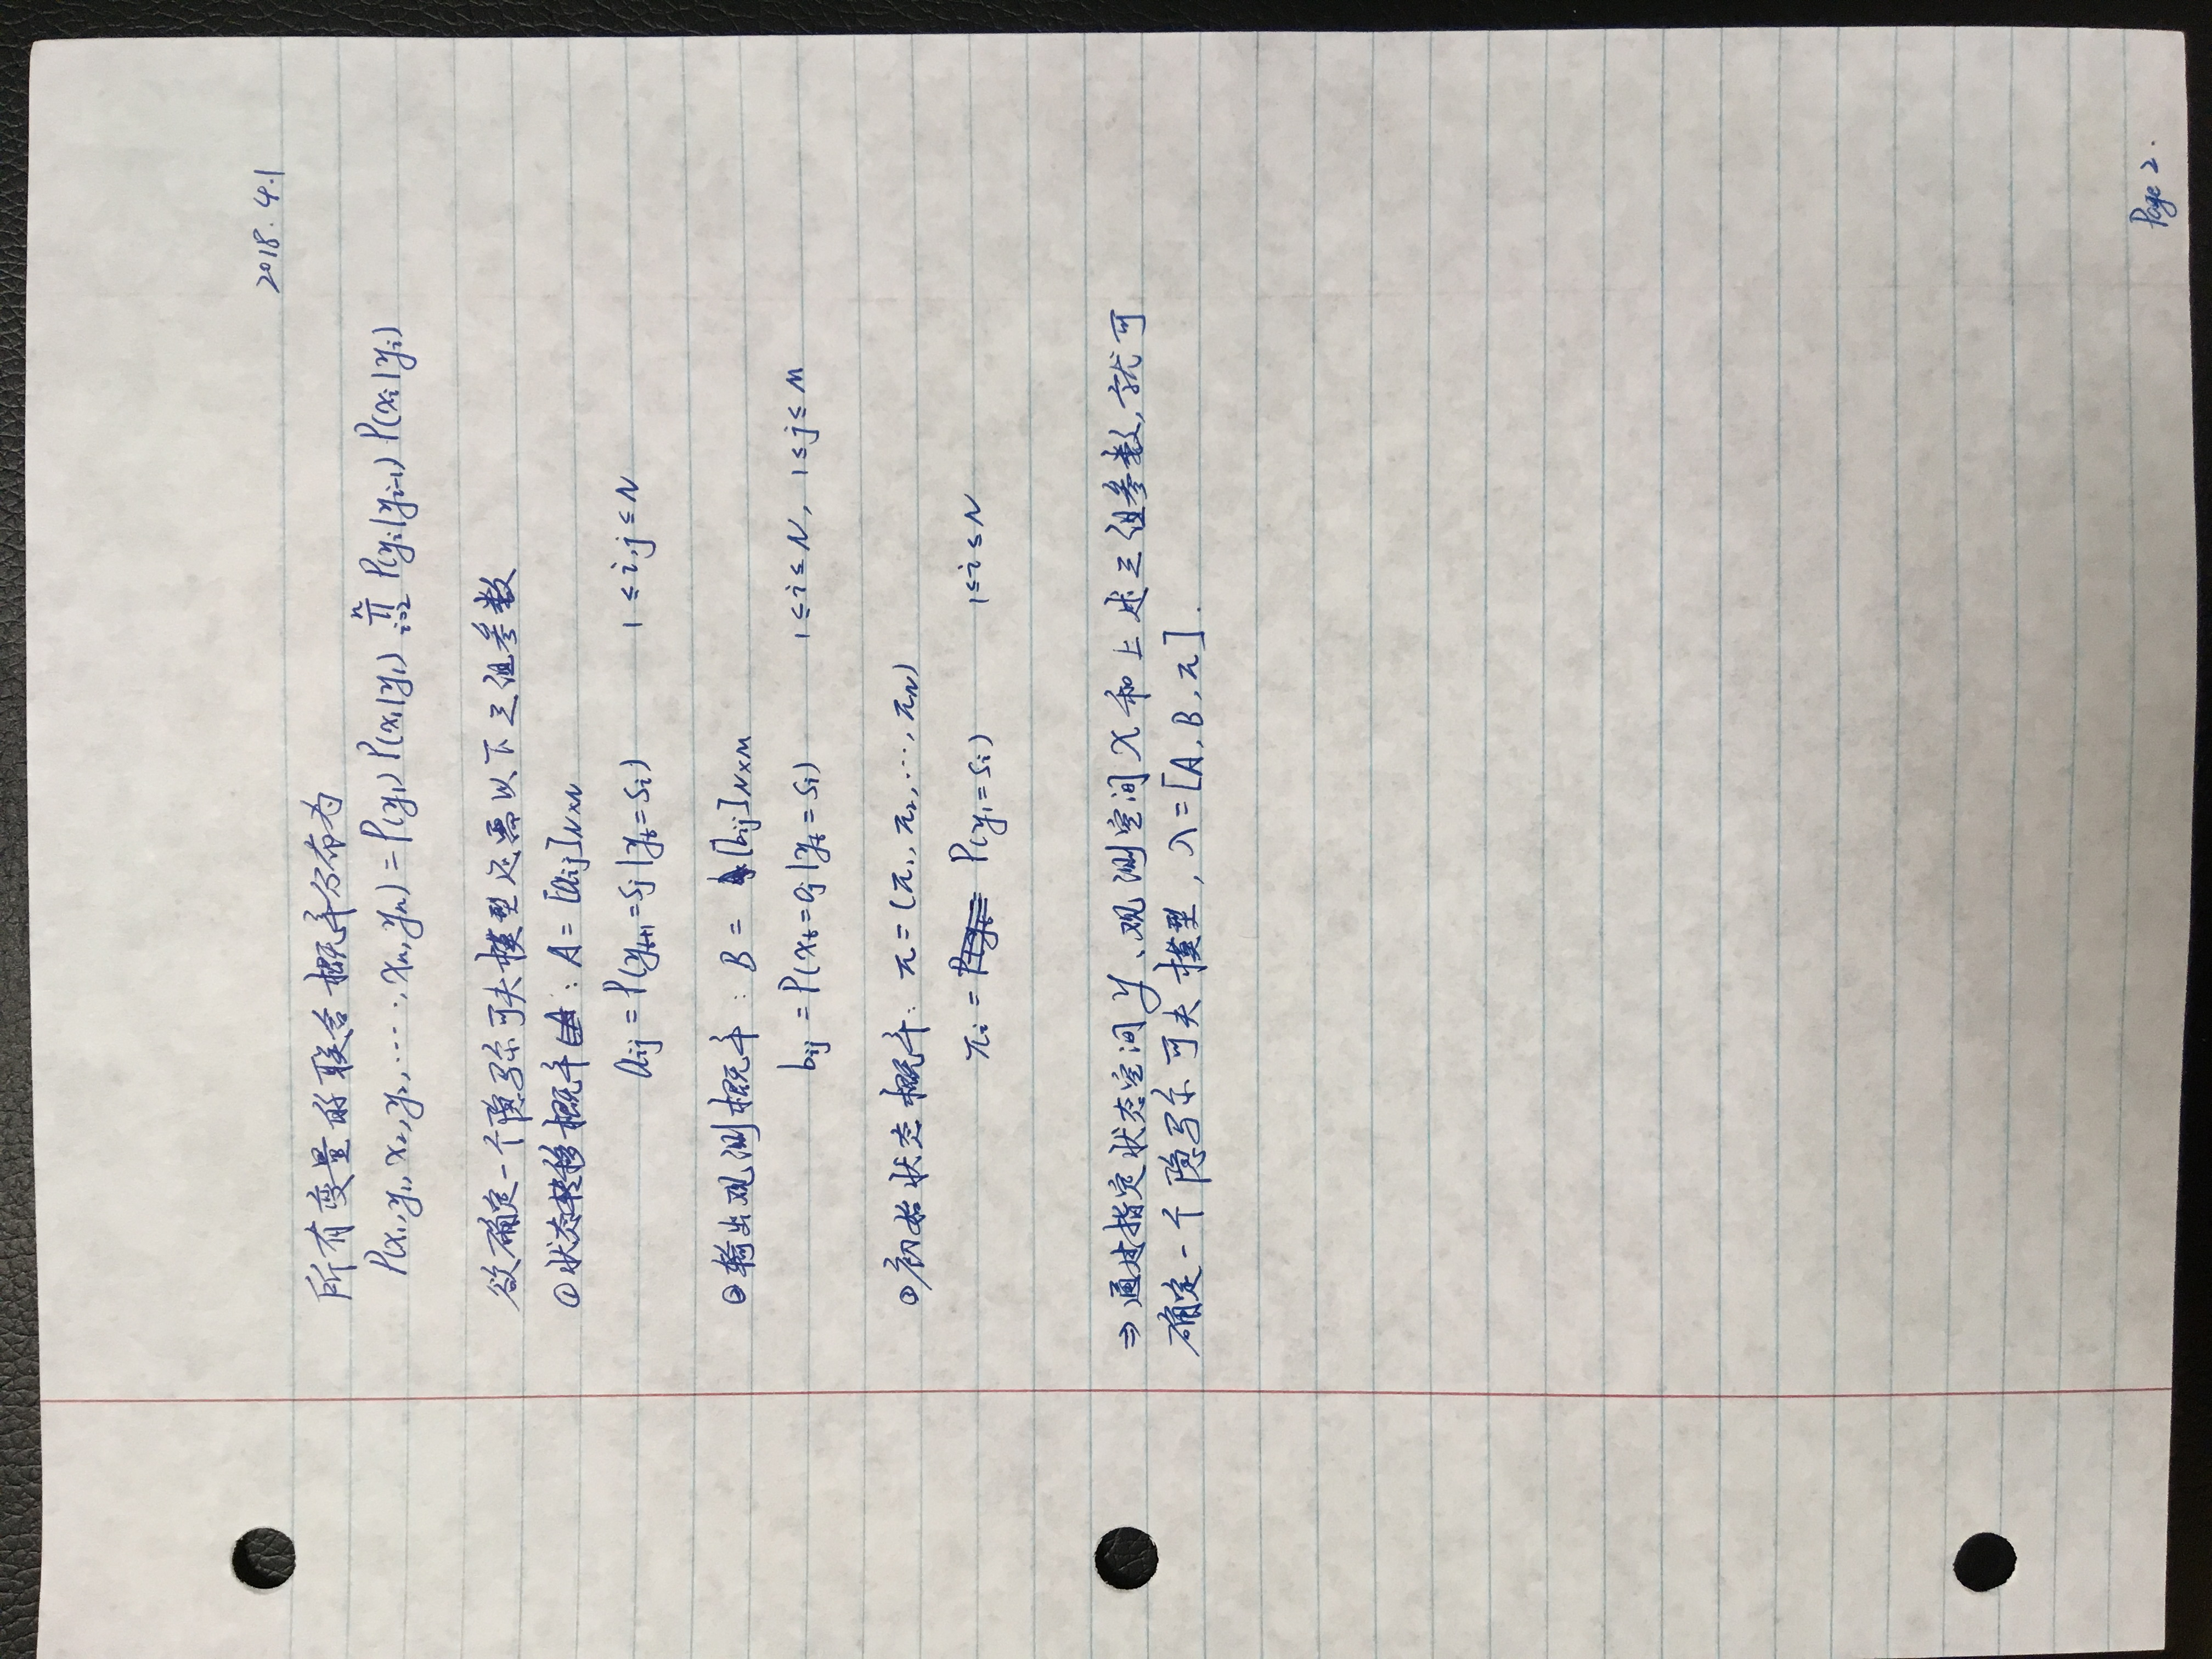 2018.4.1
所有变量的联合概率分布为
P(x₁,y₁,x₂,y₂,····,xₙ,yₙ) = P(y₁) P(x₁|y₁) ∏ᵢ₌₂ⁿ P(yᵢ|yᵢ₋₁) P(xᵢ|yᵢ)
欲确定一个隐马尔可夫模型还需以下三组参数
① 状态转移概率: A = [aij]N×N
aij = P(yt+1 = sj | yt = si) 1 ≤ i,j ≤ N
② 输出观测概率: B = [bij]N×M
bij = P(xt = oj | yt = si) 1 ≤ i ≤ N, 1 ≤ j ≤ M
③ 初始状态概率: π = (π₁, π₂, ···, πN)
πi = P(y₁ = si) 1 ≤ i ≤ N
⇒ 通过指定状态空间 y、观测空间 x 和上述三组参数,就可
确定一个隐马尔可夫模型, λ = [A, B, π].
Page 2.